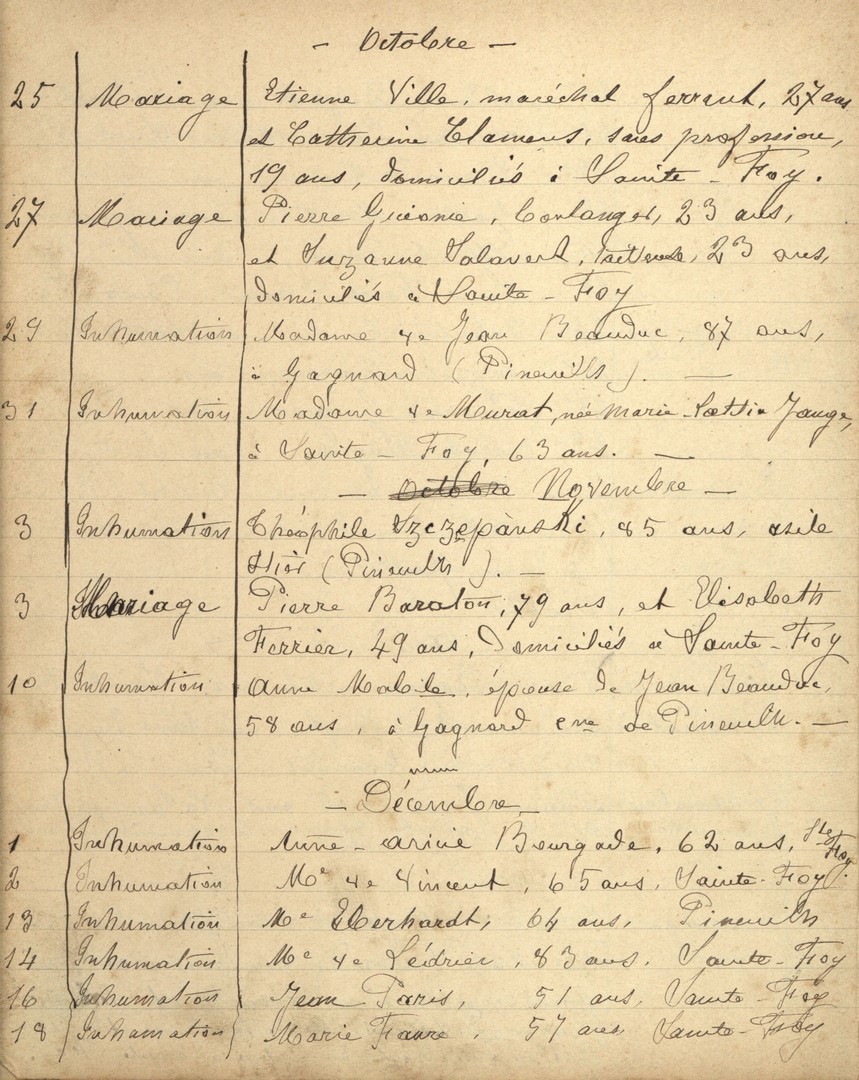 - Octobre -
25 Mariage Etienne Ville, maréchal ferrant, 27 ans
et Catherine Clamens, sans profession,
19 ans, domiciliés à Sainte-Foy.
27 Mariage Pierre Guionie, boulanger, 23 ans,
et Suzanne Salavert, 23 ans,
domiciliés à Sainte-Foy
29 Inhumation Madame Ve Jean Beauduc, 87 ans,
à Gagnard (Pineuilh). —
31 Inhumation Madame Ve Murat, née Marie-Lætitia Jauge,
à Sainte-Foy, 63 ans. —
- Octobre Novembre -
3 Inhumation Théophile Szczepànski, 85 ans, asile
(Pineuilh). —
3 Mariage Pierre Baraton, 79 ans, et Elisabeth
Ferrier, 49 ans, domiciliés à Sainte-Foy
10 Inhumation Anne Mabile, épouse de Jean Beauduc,
58 ans, à Gagnard cne de Pineuilh. —
- Décembre -
1 Inhumation Bourgade, 62 ans, Ste Foy.
2 Inhumation Me Ve Vincent, 65 ans, Sainte-Foy
13 Inhumation Me Eberhardt, 64 ans, Pineuilh
14 Inhumation Me Ve Lédrier, 83 ans, Sainte-Foy
16 Inhumation Jean Paris, 51 ans, Sainte-Foy
18 Inhumation Marie Faure, 57 ans Sainte-Foy